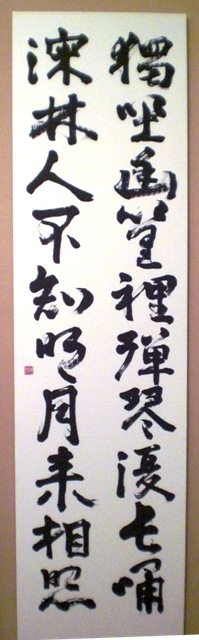 獨坐幽篁裡弾琴復長嘯
深林人不知明月来相照